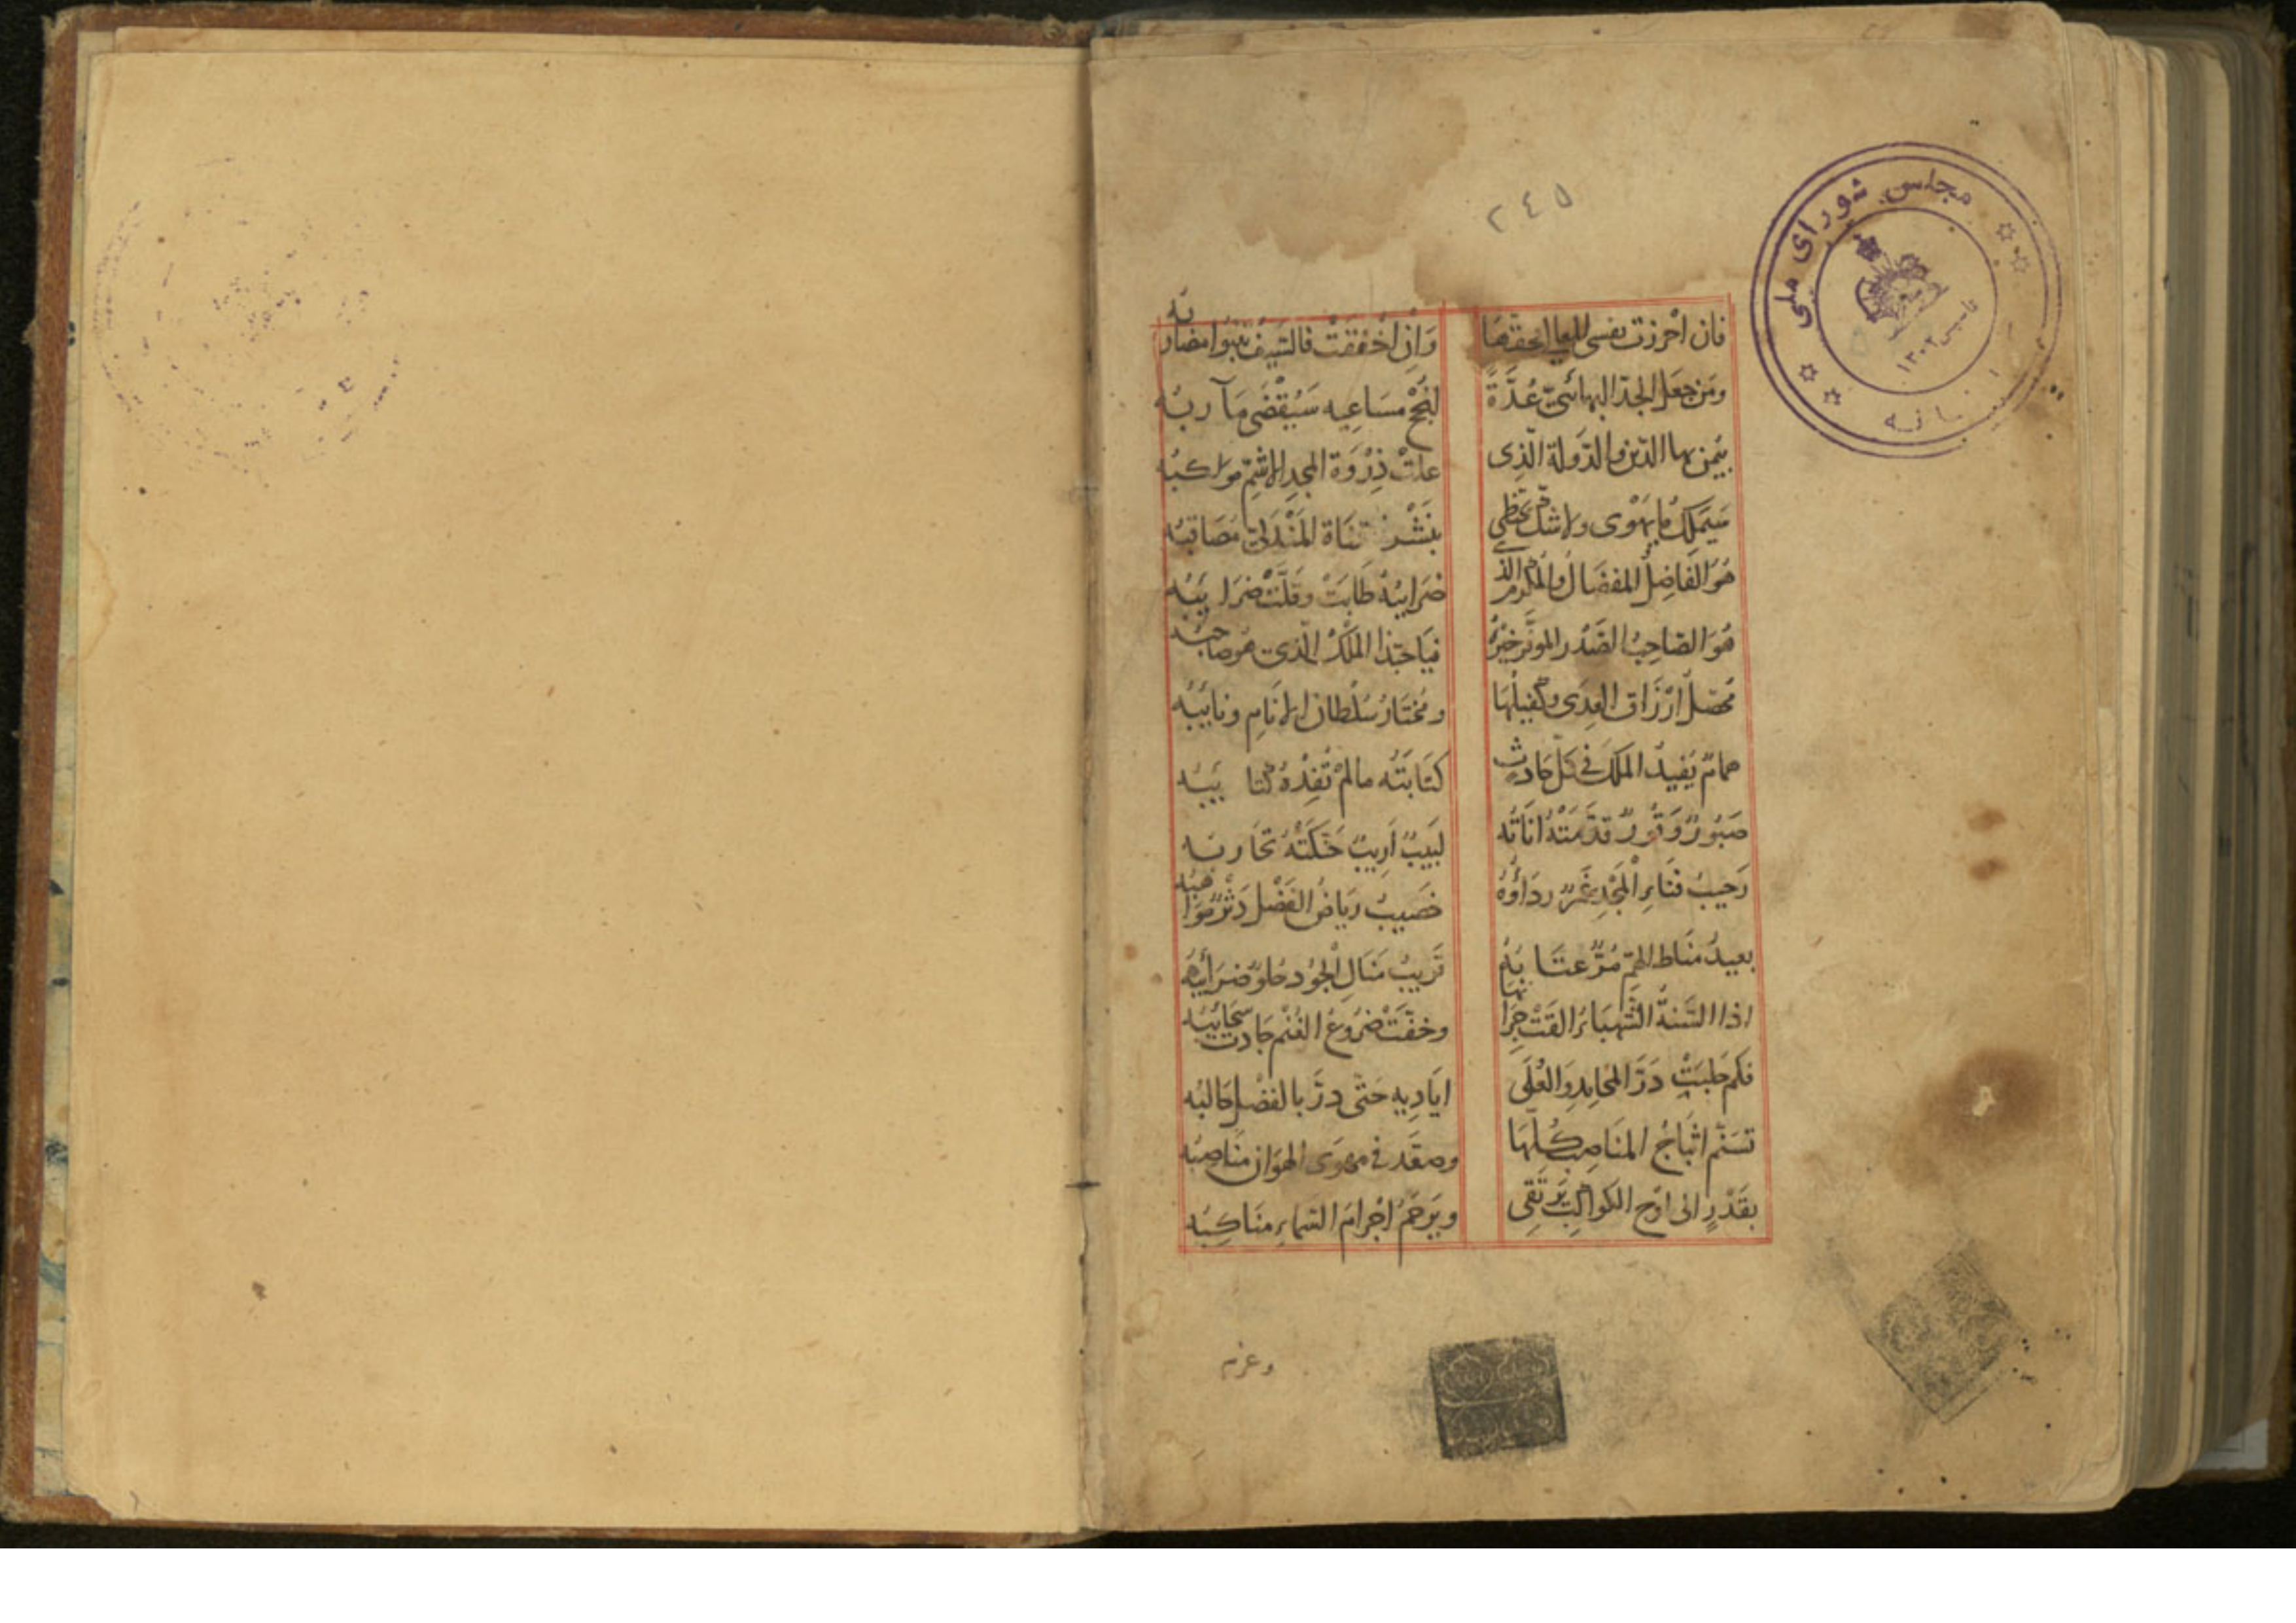 ٢٤٥
مجلس شورای ملی
تاسیس ١٣٠٢
فان احرزت نفسی وَاِن اخْفَقَتْ فالسَّیفُ تنبُوا مضاربه
ومَن جعَل الجدّ البهائیّ عُدَّةً لِنُجْحِ مسَاعِیه سَیُقْضَی مَآربُه
بیُمن بهاالدّین والدّولة الّذی علتْ ذِرْوَة المجدِ الاشمِّ مواکبُه
سَیَملِکُ مایَهْوی ولاشکّ یَحْظی بنَشْر المَنْدَلیّ مُصَاقبُه
هُوَ الفاضِلُ المفضَالُ والمُکرم الذی ضَرایبُهُ طابَتْ وقَلَّتْ ضَرایبُه
هُوَ الصّاحِبُ الصَّدْر الموَقّرخَیْرُهُ فیَاحبّذا المَلکُ الّذی هوصاحبُه
مُحصّلُ ارْزَاق الوَری وکفیلُهَا ومُختَارُ سُلْطان الانَامِ ونایبُه
همامٌ یُفیدُ المَلکَ فی کلّ حادثٍ کتَابَتُه مالَمْ تُفِدْهُ کتایبُه
صَبُورٌ وَقُورٌ قدّمَتْهُ انَاتُه لَبیبٌ اَریبٌ حَنّکَتْهُ تجَاربُه
رَحیبُ فنَاءِ الْمَجْدِ غَمْرٌ رِدَاؤُهُ خَصیبُ ریَاضِ الفَضْل دَثْرٌ مَوَاهبُه
بعیدُ مَناط الهمّ مُرٌّ عتَابُهُ قَریبُ مَنَالِ الْجُود حُلوٌ ضَرَائبُه
اذا السَّنةُ الشَّهبَاءُ القَتْ جِرَانَها وخفّتْ ضُرُوعُ الغُنْم جَادت سَحَائبُه
فکم حَلبَتْ دَرَّ المحَامِدِ والعُلَی ایَادِیهِ حَتّی دَرَّ بالفضْل حَالبُه
تسَنّم اثبَاجُ المنَاصِب کُلّهَا وصعّد فی مهوَی الهوَان مُنَاصِبُه
بقَدْرٍ الی اوْج الکواکب یَرتَقی ویَزحَمُ اجْرامَ السَّماءِ منَاکِبُه
وعزم